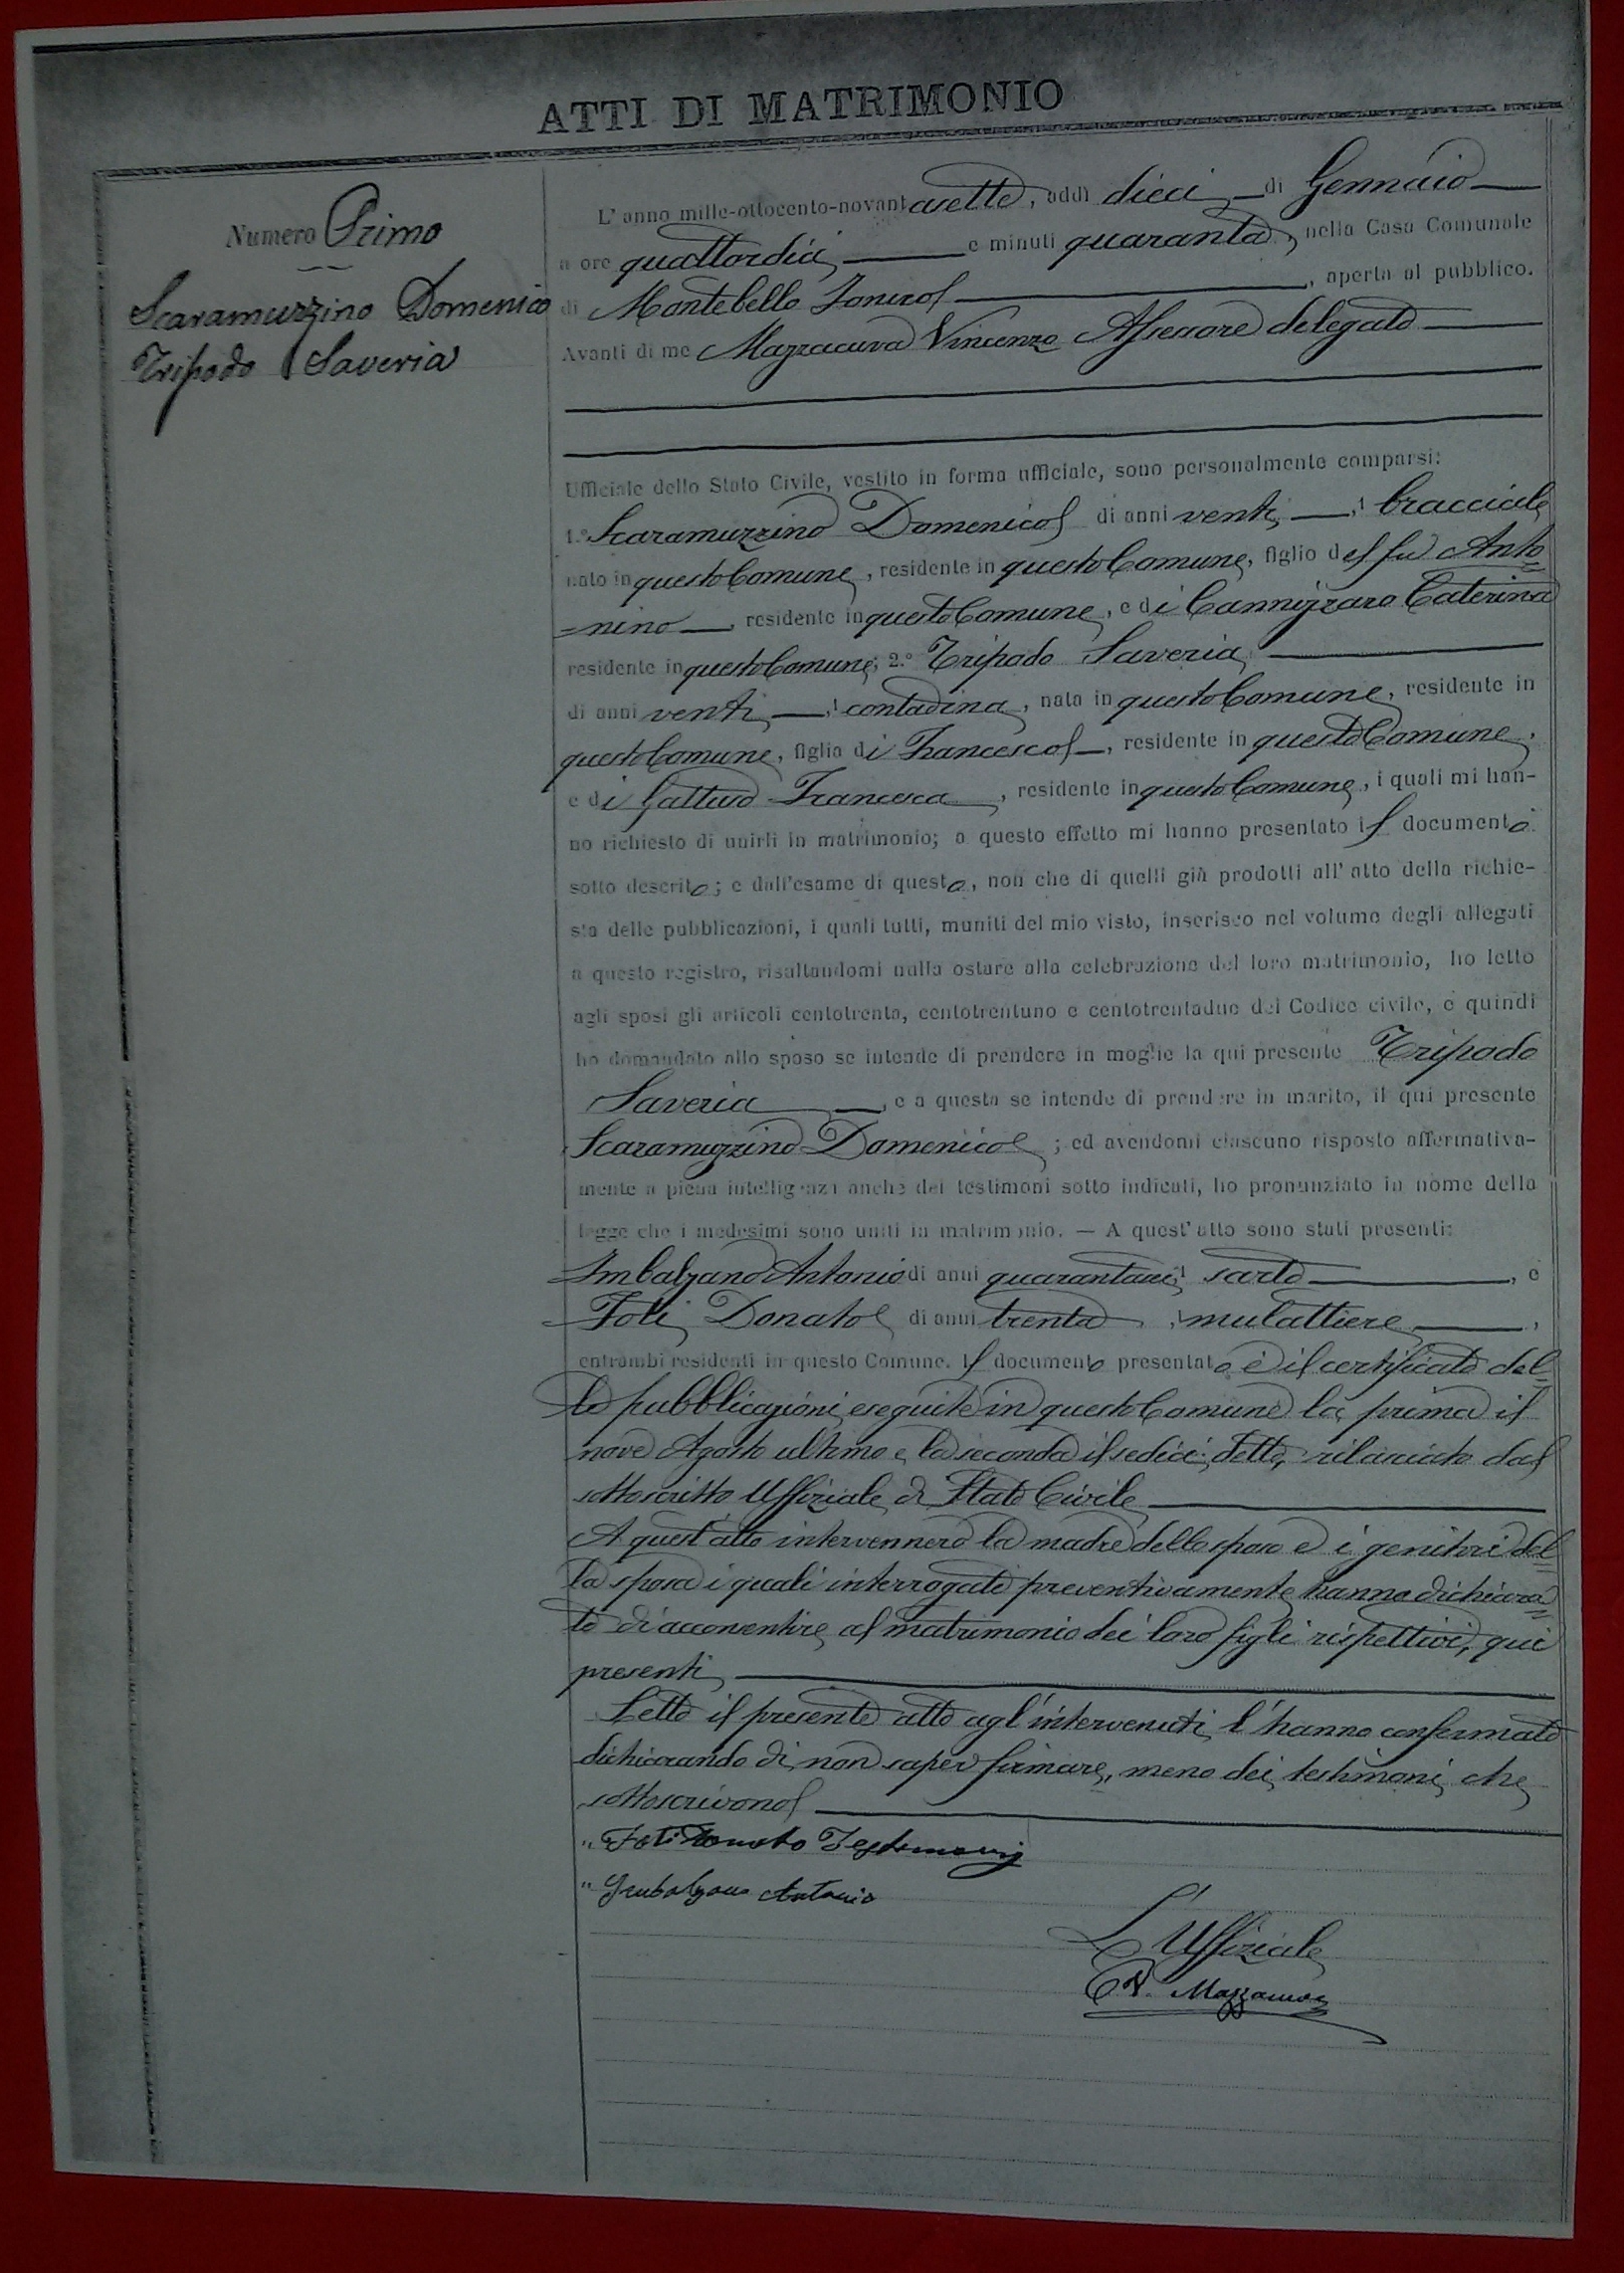 ATTI DI MATRIMONIO
Numero Primo
Scaramuzzino Domenico
Tripodo Saveria
L'anno mille-ottocento-novantasette, addì dieci di Gennaio
a ore quattordici e minuti quaranta, nella Casa Comunale
di Montebello Jonico, aperta al pubblico.
Avanti di me Mazzacuva Vincenzo Assessore delegato
Ufficiale dello Stato Civile, vestito in forma ufficiale, sono personalmente comparsi:
1.° Scaramuzzino Domenico di anni venti, bracciale
nato in questo Comune, residente in questo Comune, figlio del fu Anto
=nino, residente in questo Comune, e di Cannizzaro Caterina
residente in questo Comune; 2.° Tripodo Saveria
di anni venti, contadina, nata in questo Comune, residente in
questo Comune, figlia di Francesco, residente in questo Comune,
e di Gattuso Francesca, residente in questo Comune, i quali mi han-
no richiesto di unirli in matrimonio; a questo effetto mi hanno presentato il documento
sotto descritto; e dall'esame di questo, non che di quelli già prodotti all'atto della richie-
sta delle pubblicazioni, i quali tutti, muniti del mio visto, inserisco nel volume degli allegati
a questo registro, risultandomi nulla ostare alla celebrazione del loro matrimonio, ho letto
agli sposi gli articoli centotrenta, centotrentuno e centotrentadue del Codice civile, e quindi
ho domandato allo sposo se intende di prendere in moglie la qui presente Tripodo
Saveria, e a questa se intende di prendere in marito, il qui presente
Scaramuzzino Domenico; ed avendomi ciascuno risposto affermativa-
mente a piena intelligenza anche dei testimoni sotto indicati, ho pronunziato in nome della
legge che i medesimi sono uniti in matrimonio. — A quest'atto sono stati presenti:
Imbalzano Antonio di anni sarto, e
Foti Donato di anni trenta, mulattiere,
entrambi residenti in questo Comune. Il documento presentato è il certificato del=
le pubblicazioni eseguite in questo Comune la prima il
nove Agosto ultimo e la seconda il sedici detto, rilasciato dal
sottoscritto Uffiziale di Stato Civile
A quest'atto intervennero la madre dello sposo e i genitori del=
la sposa i quali interrogati preventivamente hanno dichiara=
to di acconsentire al matrimonio dei loro figli rispettivi, qui
presenti
Letto il presente atto agl'intervenuti, l'hanno confermato
dichiarando di non saper firmare, meno dei testimoni che
sottoscrivono
" Foti Donato Testimonij
" Imbalzano Antonio
L'Uffiziale
V. Mazzacuva